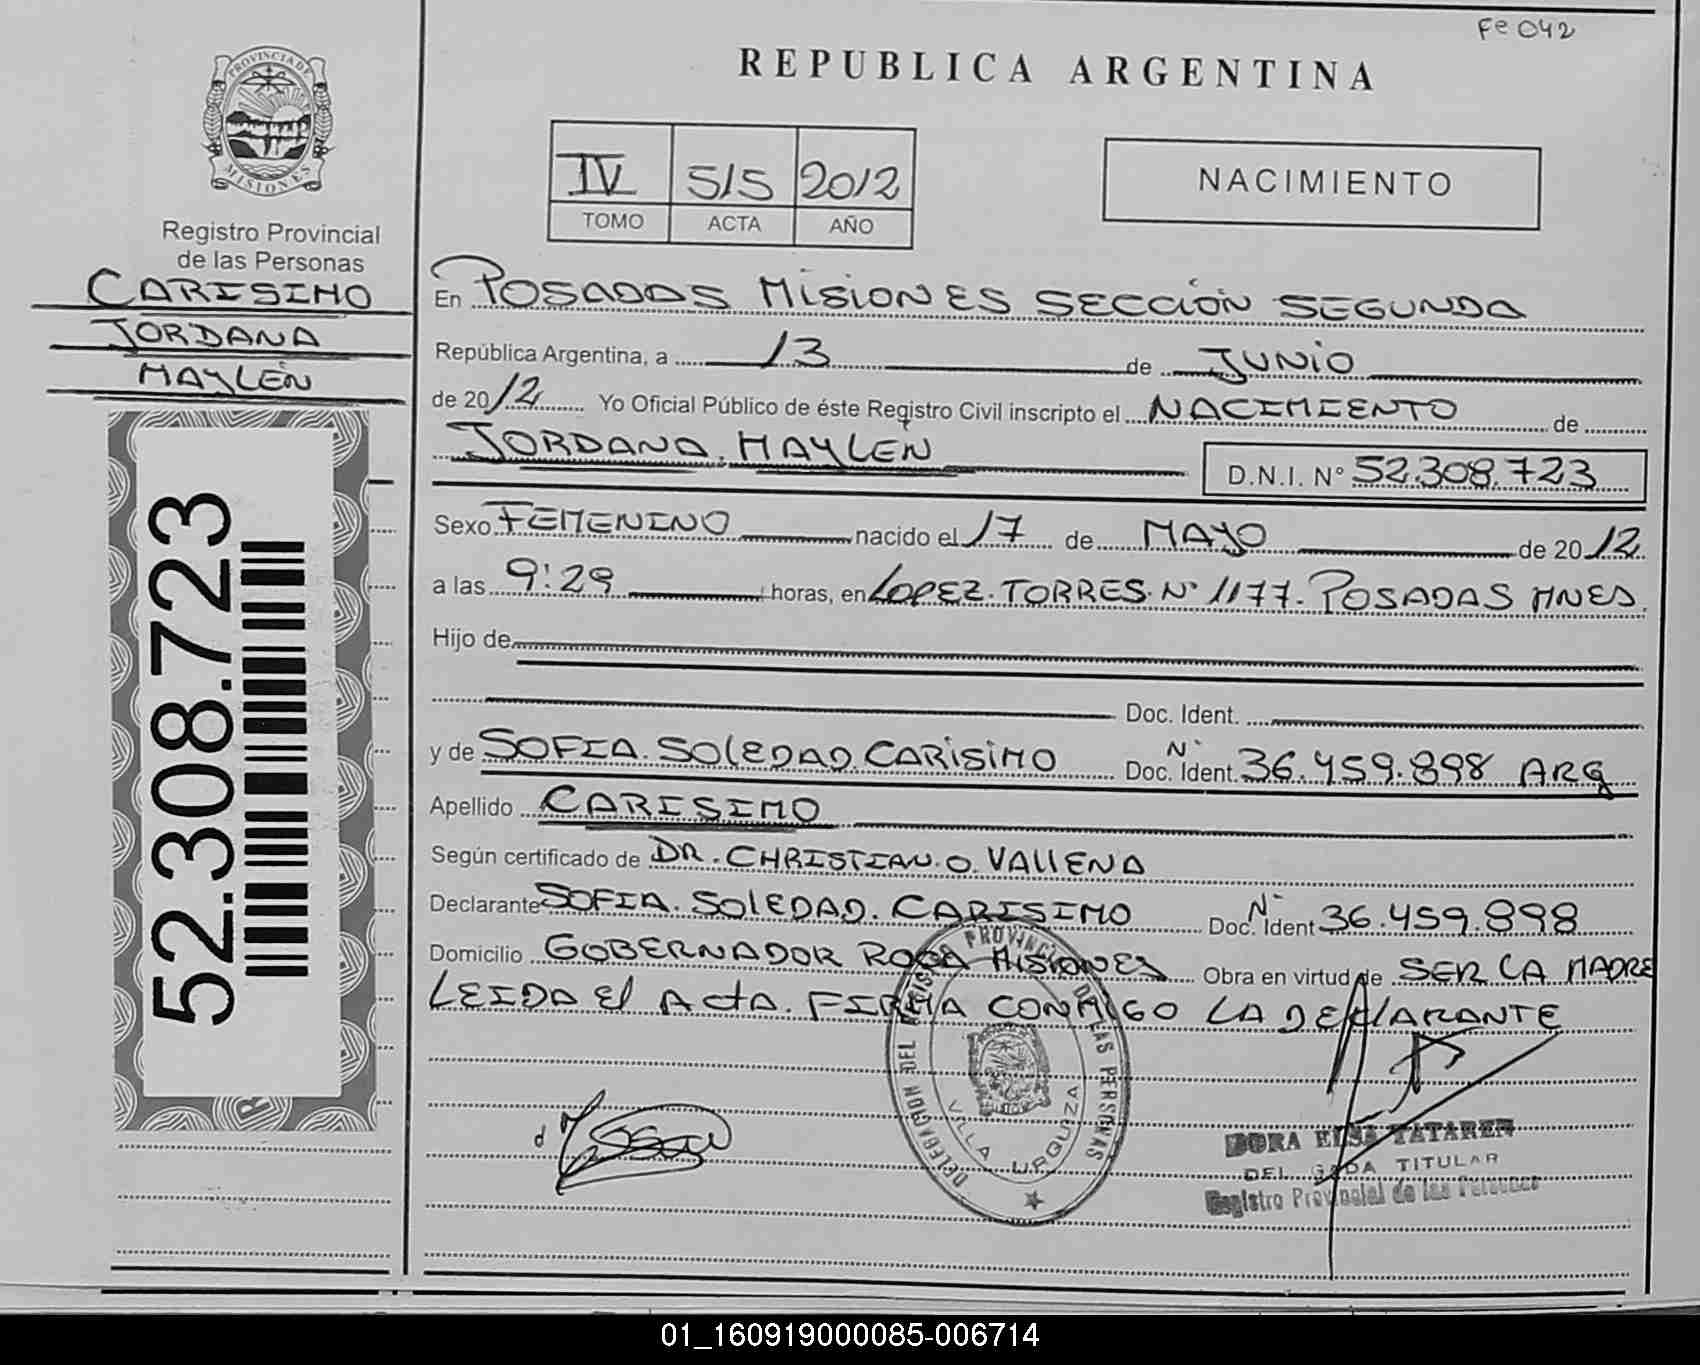 Fe 042
PROVINCIA DE
MISIONES
Registro Provincial
de las Personas
CARISIMO
JORDANA
MAYLEN
52.308.723
REPUBLICA ARGENTINA
IV 515 2012
TOMO ACTA AÑO
NACIMIENTO
En POSADAS MISIONES SECCIÓN SEGUNDA
República Argentina, a 13 de JUNIO
de 2012 Yo Oficial Público de éste Registro Civil inscripto el NACIMIENTO de
JORDANA. MAYLEN D.N.I. N° 52.308.723
Sexo FEMENINO nacido el 17 de MAYO de 2012
a las 9:29 horas, en LOPEZ. TORRES. N° 1177. POSADAS MNES.
Hijo de
Doc. Ident.
y de SOFIA. SOLEDAD. CARISIMO Doc. Ident. N° 36.459.898 ARG
Apellido CARISIMO
Según certificado de DR. CHRISTIAN. O. VALLENA
Declarante SOFIA. SOLEDAD. CARISIMO Doc. Ident N° 36.459.898
Domicilio GOBERNADOR ROCA MISIONES Obra en virtud de SER LA MADRE
LEIDA El ActA. FIRMA CONMIGO LA DEClARANTE
DELEGACION DEL REGISTRO PROVINCIAL DE LAS PERSONAS
VILLA URQUIZA
DORA ELSA TATAREN
DELEGADA TITULAR
Registro Provincial de las Personas
01_160919000085-006714